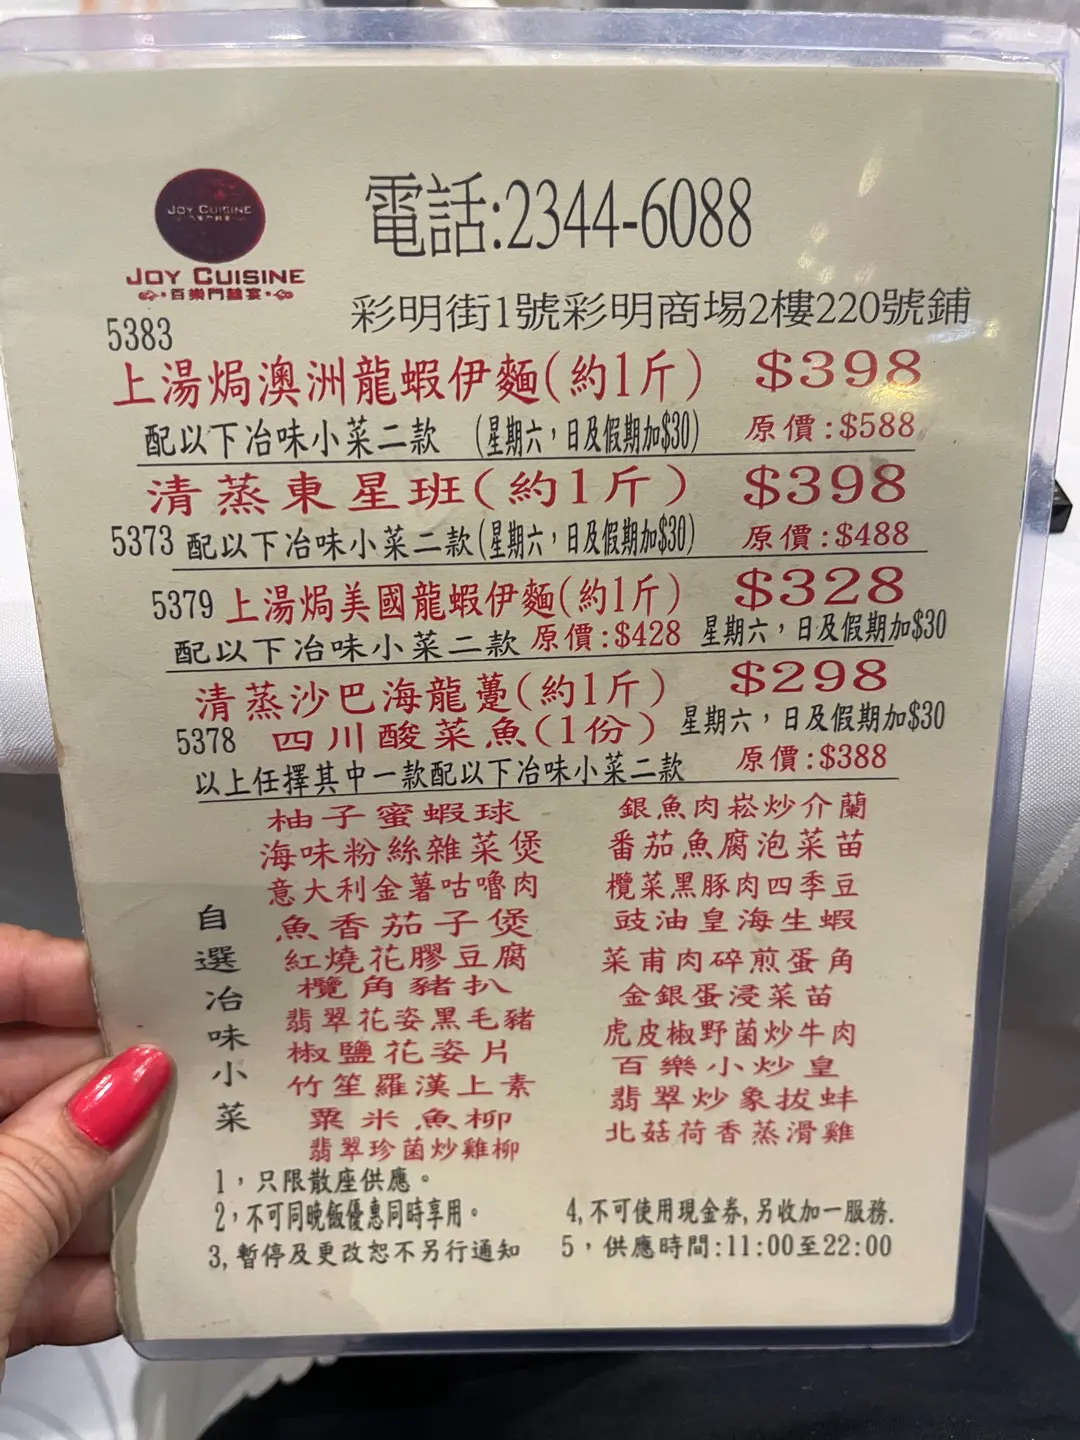 JOY CUISINE
JOY CUISINE
百樂門囍宴
電話:2344-6088
彩明街1號彩明商場2樓220號鋪
5383
上湯焗澳洲龍蝦伊麵(約1斤) $398
配以下冶味小菜二款 (星期六，日及假期加$30) 原價:$588
清蒸東星班(約1斤) $398
5373 配以下冶味小菜二款(星期六，日及假期加$30) 原價:$488
5379 上湯焗美國龍蝦伊麵(約1斤) $328
配以下冶味小菜二款 原價:$428 星期六，日及假期加$30
清蒸沙巴海龍躉(約1斤) $298
5378 四川酸菜魚(1份) 星期六，日及假期加$30
以上任擇其中一款配以下冶味小菜二款 原價:$388
自選冶味小菜
柚子蜜蝦球
海味粉絲雜菜煲
意大利金薯咕嚕肉
魚香茄子煲
紅燒花膠豆腐
欖角豬扒
翡翠花姿黑毛豬
椒鹽花姿片
竹笙羅漢上素
粟米魚柳
翡翠珍菌炒雞柳
銀魚肉崧炒介蘭
番茄魚腐泡菜苗
欖菜黑豚肉四季豆
豉油皇海生蝦
菜甫肉碎煎蛋角
金銀蛋浸菜苗
虎皮椒野菌炒牛肉
百樂小炒皇
翡翠炒象拔蚌
北菇荷香蒸滑雞
1，只限散座供應。
2，不可同晚飯優惠同時享用。
3,暫停及更改恕不另行通知
4,不可使用現金券,另收加一服務.
5，供應時間:11:00至22:00